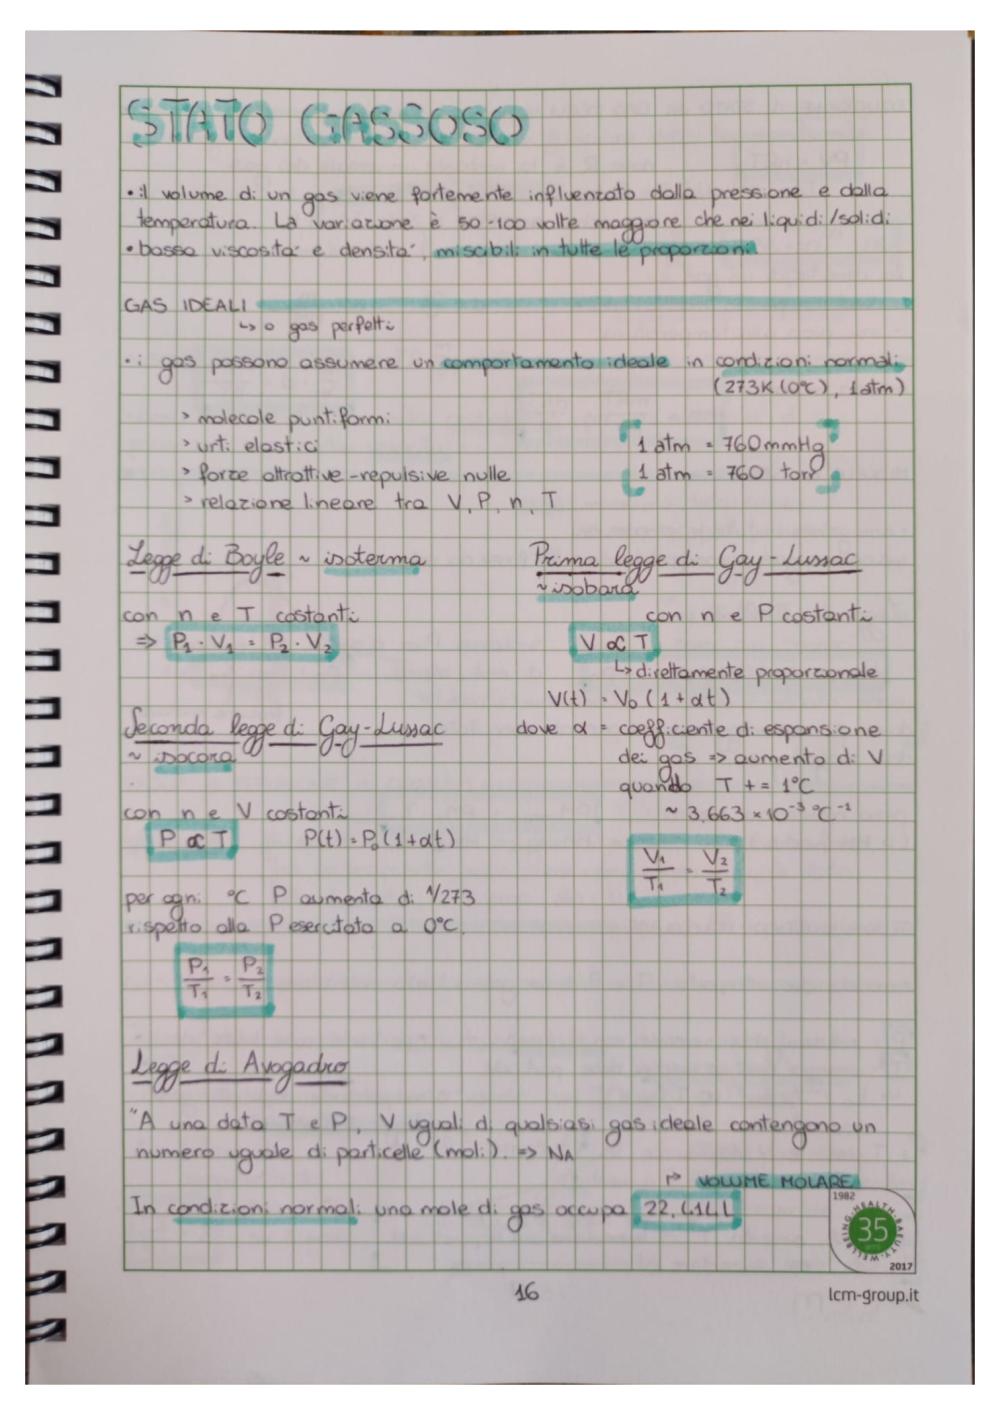 STATO GASSOSO
• il volume di un gas viene fortemente influenzato dalla pressione e dalla
temperatura. La variazione è 50-100 volte maggiore che nei liquidi/solidi
• bassa viscosità e densità, miscibili in tutte le proporzioni
GAS IDEALI
↳ o gas perfetti
• i gas possono assumere un comportamento ideale in condizioni normali
(273K (0°C), 1 atm)
> molecole puntiformi
> urti elastici
> forze attrattive-repulsive nulle
> relazione lineare tra V, P, n, T
1 atm = 760 mmHg
1 atm = 760 torr
Legge di Boyle ~ isoterma
con n e T costanti
⇒ P₁ · V₁ = P₂ · V₂
Prima legge di Gay-Lussac
~ isobara
con n e P costanti
V ∝ T
↳ direttamente proporzionale
V(t) = V₀ (1 + αt)
dove α = coefficiente di espansione
dei gas => aumento di V
quando T += 1°C
~ 3,663 × 10⁻³ °C⁻¹
V₁/T₁ = V₂/T₂
Seconda legge di Gay-Lussac
~ isocora
con n e V costanti
P ∝ T P(t) = P₀ (1 + αt)
per ogni °C P aumenta di 1/273
rispetto alla P esercitata a 0°C.
P₁/T₁ = P₂/T₂
Legge di Avogadro
"A una data T e P, V uguali di qualsiasi gas ideale contengono un
numero uguale di particelle (moli). => NA
↱ VOLUME MOLARE
In condizioni normali una mole di gas occupa 22,414 L
1982
HEALTH·BEAUTY·WELLBEING
35
2017
16
lcm-group.it